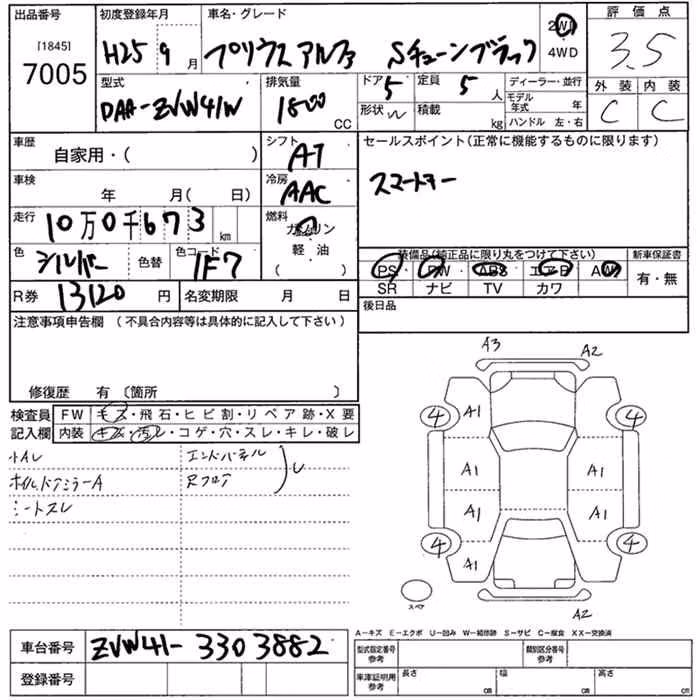 出品番号 初度登録年月 車名・グレード 評価点
[1845] 7005 H25 9月 プリウスアルファ Sチューンブラック 2WD 4WD 3.5
型式 排気量 ドア 定員 ディーラー・並行 外装 内装
DAA-ZVW41W 1800 CC 5 5人 モデル年式 年 C C
形状 W 積載 kg ハンドル 左・右
車歴 シフト セールスポイント(正常に機能するものに限ります)
自家用・( ) AT
スマートキー
車検 冷房
年 月( 日) AAC
走行 燃料
10万0千673km ガソリン
色 色替 色コード 軽油
シルバー 1F7 ( )
装備品(純正品に限り丸をつけて下さい) 新車保証書
PS PW ABS エアB AW 有・無
SR ナビ TV カワ
R券 13120円 名変期限 月 日
後日品
注意事項申告欄 (不具合内容等は具体的に記入して下さい)
修復歴 有 〔箇所 〕
検査員 FW キズ・飛石・ヒビ割・リペア跡・X要
記入欄 内装 キズ・汚レ・コゲ・穴・スレ・キレ・破レ
小AL エンドパネル
Rフロア
シートスレ
A3 A2
4 A1 4
A1 A1
A1 A1
4 A1 4
スペア
A2
A-キズ E-エクボ U-凹み W-補修跡 S-サビ C-腐食 XX-交換済
車台番号 ZVW41-3303882 型式指定番号 参考 類別区分番号 参考
登録番号 車庫証明用 参考 長さ cm 幅 cm 高さ cm